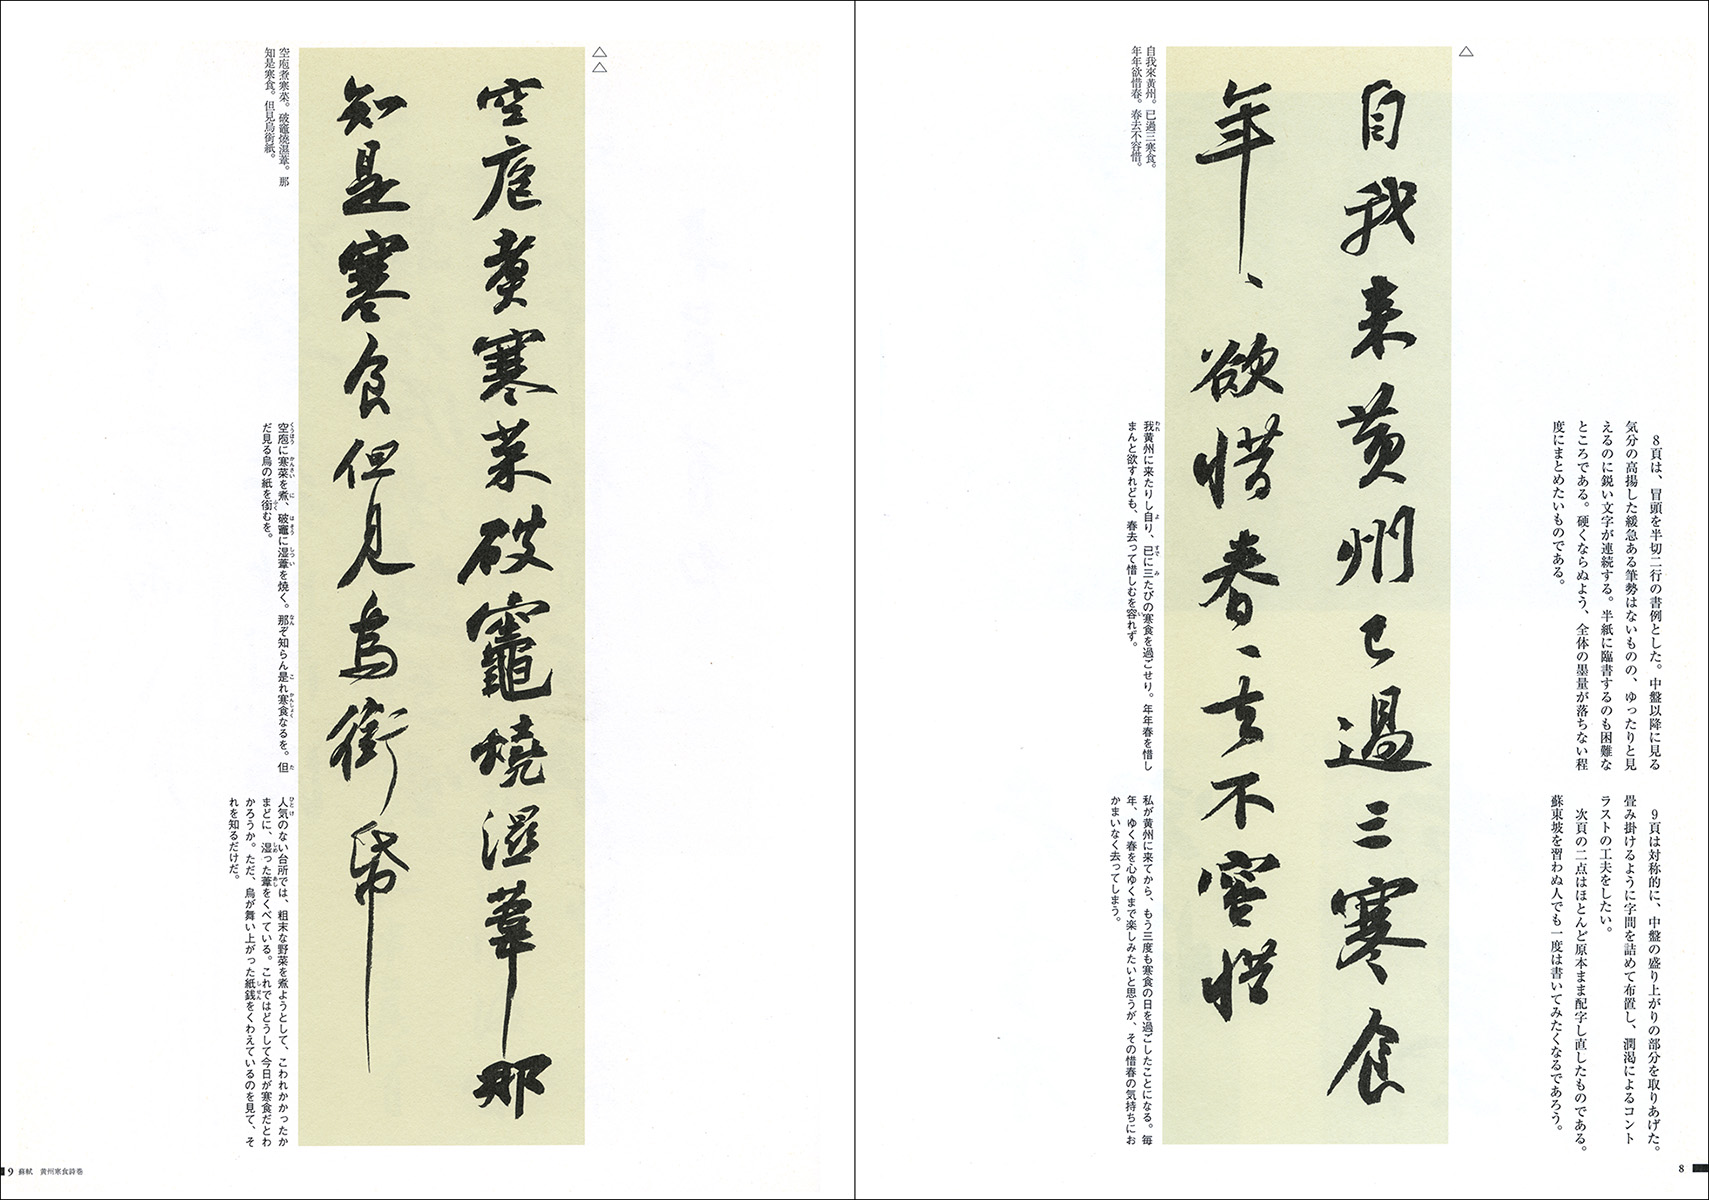 8頁は、冒頭を半切二行の書例とした。中盤以降に見る
気分の高揚した緩急ある筆勢はないものの、ゆったりと見
えるのに鋭い文字が連続する。半紙に臨書するのも困難な
ところである。硬くならぬよう、全体の墨量が落ちない程
度にまとめたいものである。
9頁は対称的に、中盤の盛り上がりの部分を取りあげた。
畳み掛けるように字間を詰めて布置し、潤渇によるコント
ラストの工夫をしたい。
次頁の二点はほとんど原本まま配字し直したものである。
蘇東坡を習わぬ人でも一度は書いてみたくなるであろう。
△
自我来黄州已過三寒食
年、欲惜春、去不容惜
自我來黃州。已過三寒食。
年年欲惜春。春去不容惜。
我黄州に来たりし自り、已に三たびの寒食を過ごせり。年年春を惜し
まんと欲すれども、春去って惜しむを容れず。
私が黄州に来てから、もう三度も寒食の日を過ごしたことになる。毎
年、ゆく春を心ゆくまで楽しみたいと思うが、その惜春の気持ちにお
かまいなく去ってしまう。
8
△△
空庖煮寒菜破竈燒濕葦那
知是寒食但見烏銜帋
空庖煮寒菜。破竈燒濕葦。那
知是寒食。但見烏銜紙。
空庖に寒菜を煮、破竈に湿葦を焼く。那ぞ知らん是れ寒食なるを。但
だ見る烏の紙を銜むを。
人気のない台所では、粗末な野菜を煮ようとして、こわれかかったか
まどに、湿った葦をくべている。これではどうして今日が寒食だとわ
かろうか。ただ、烏が舞い上がった紙銭をくわえているのを見て、そ
れを知るだけだ。
9 蘇軾 黄州寒食詩巻